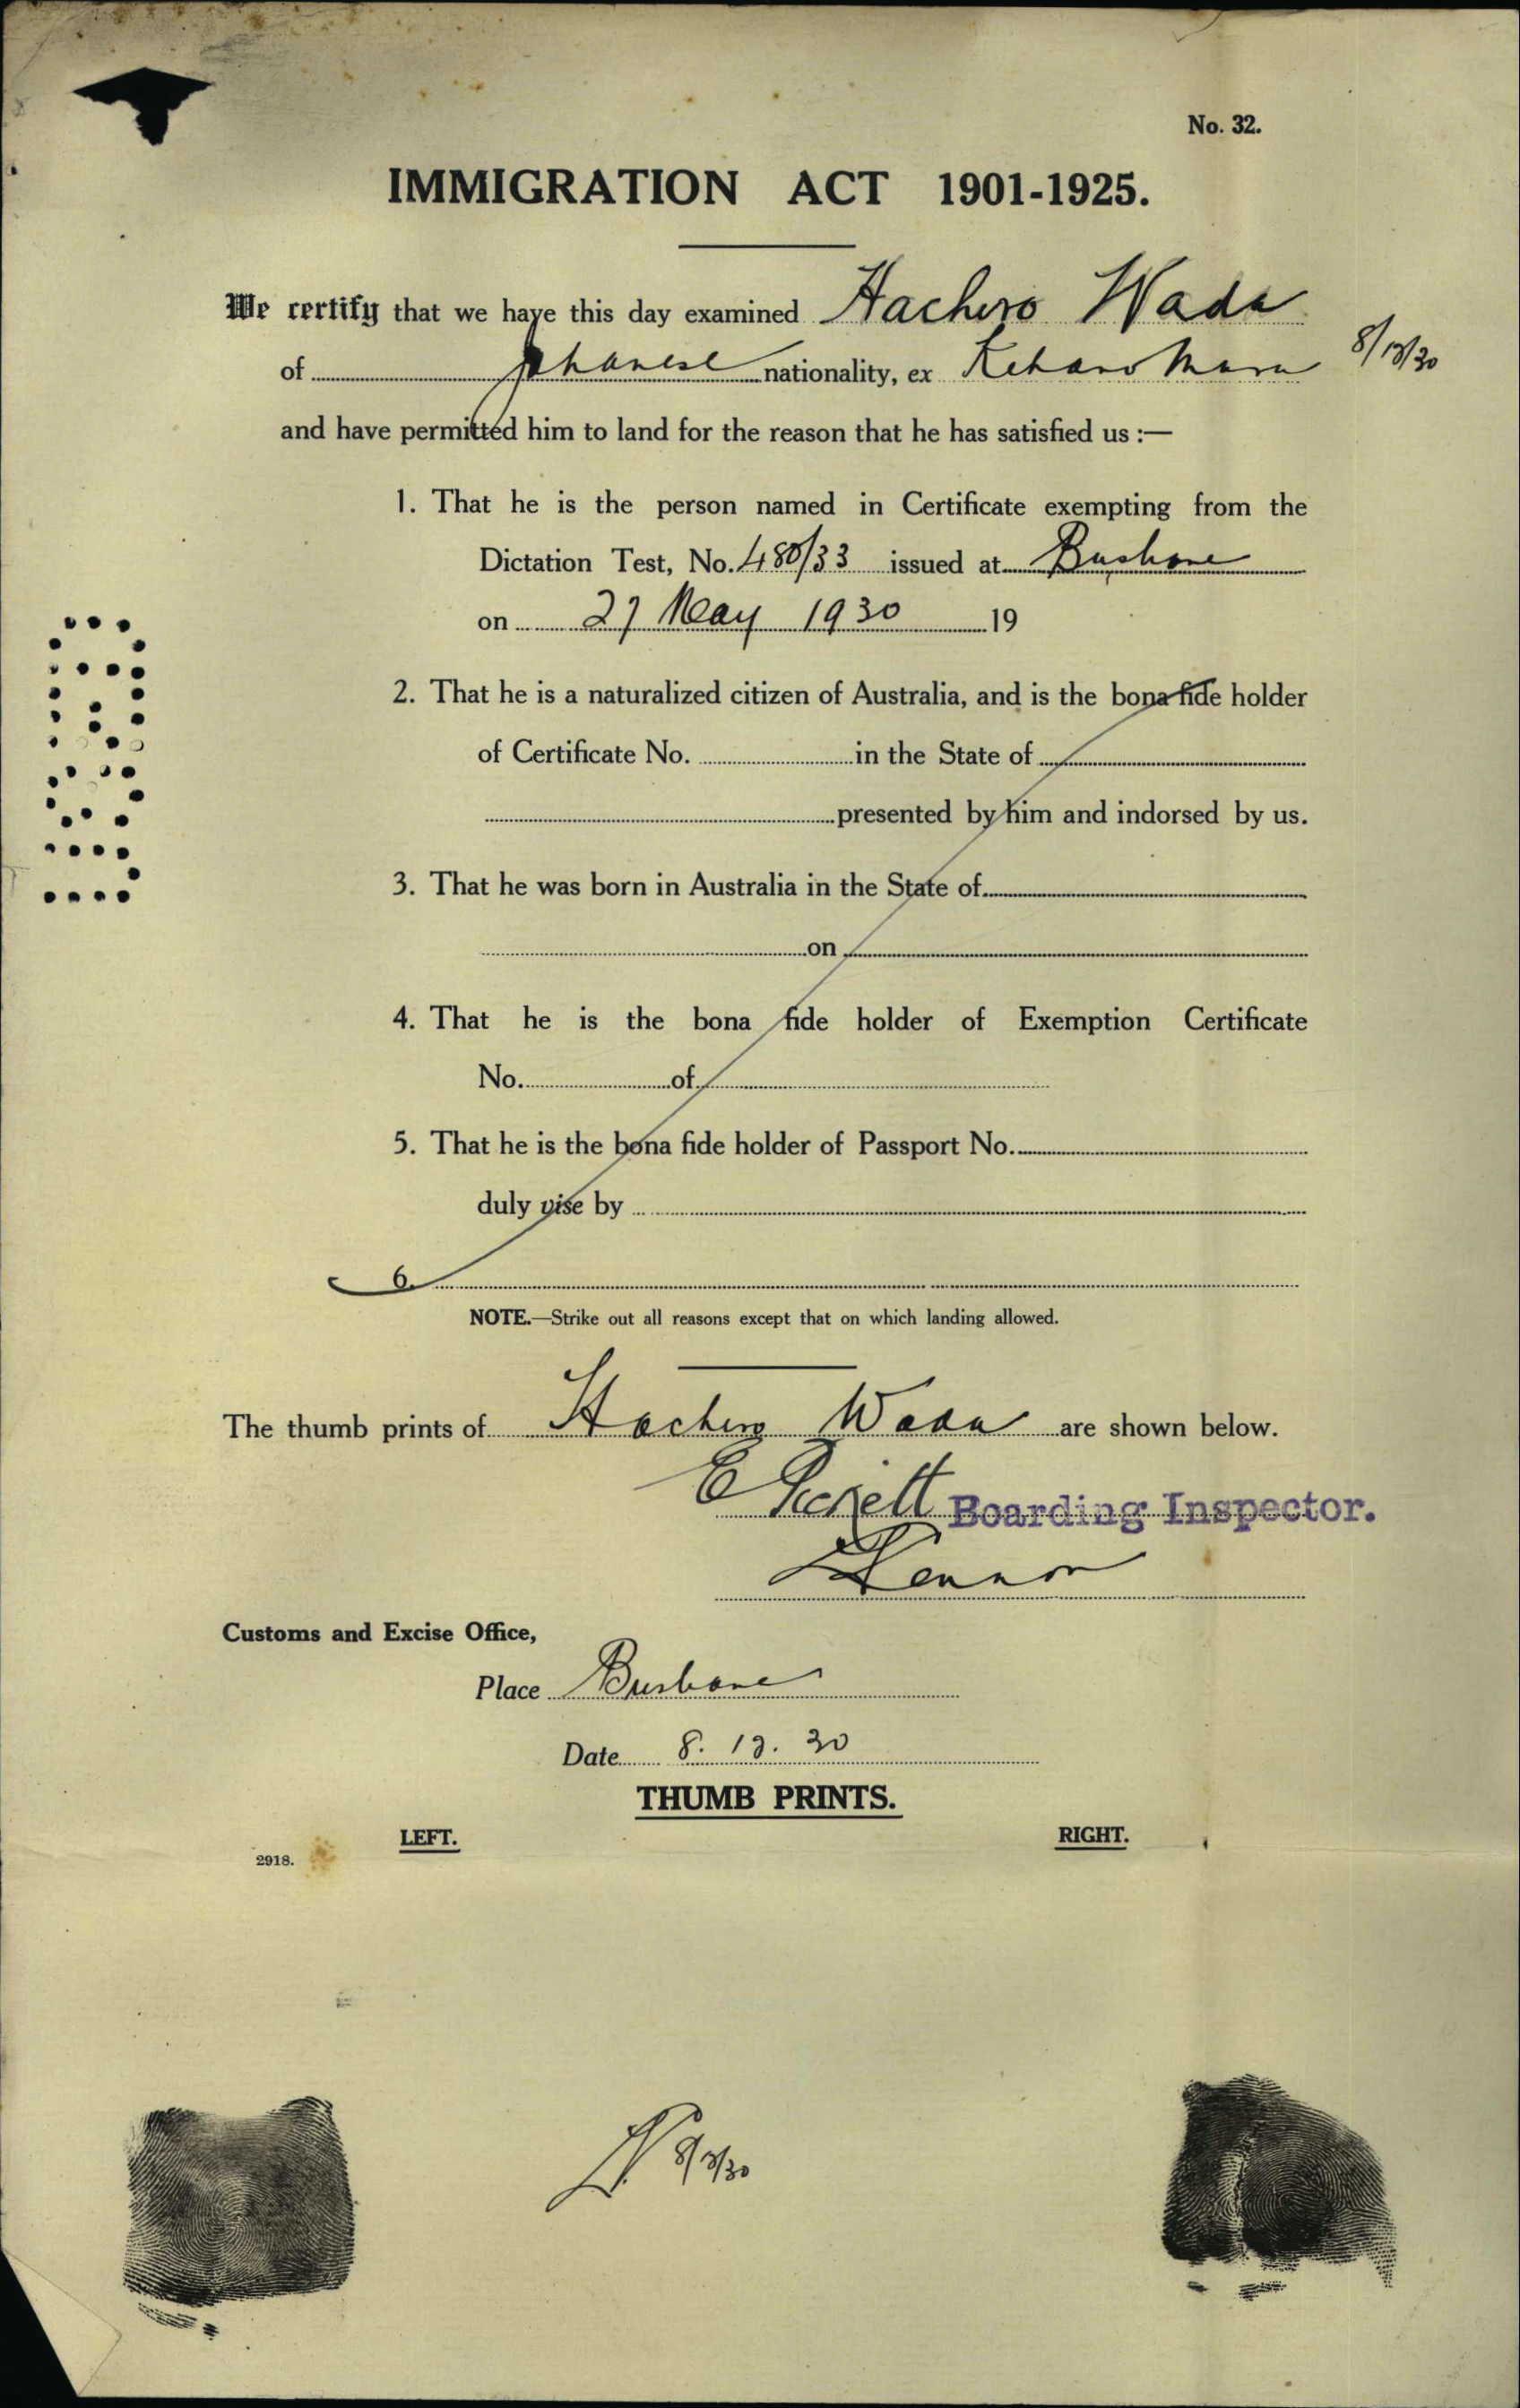 No. 32.
IMMIGRATION ACT 1901-1925.
We certify that we have this day examined Hachero Wada
of Japanese nationality, ex Kitano Maru 8/12/30
and have permitted him to land for the reason that he has satisfied us :—
1. That he is the person named in Certificate exempting from the
Dictation Test, No. 480/33 issued at Brisbane
on 27 May 1930 19
2. That he is a naturalized citizen of Australia, and is the bona fide holder
of Certificate No. in the State of
presented by him and indorsed by us.
3. That he was born in Australia in the State of
on
4. That he is the bona fide holder of Exemption Certificate
No. of
5. That he is the bona fide holder of Passport No.
duly vise by
6.
NOTE.—Strike out all reasons except that on which landing allowed.
The thumb prints of Hachero Wada are shown below.
Boarding Inspector.
Customs and Excise Office,
Place Brisbane
Date 8. 12. 30
THUMB PRINTS.
LEFT. RIGHT.
2918.